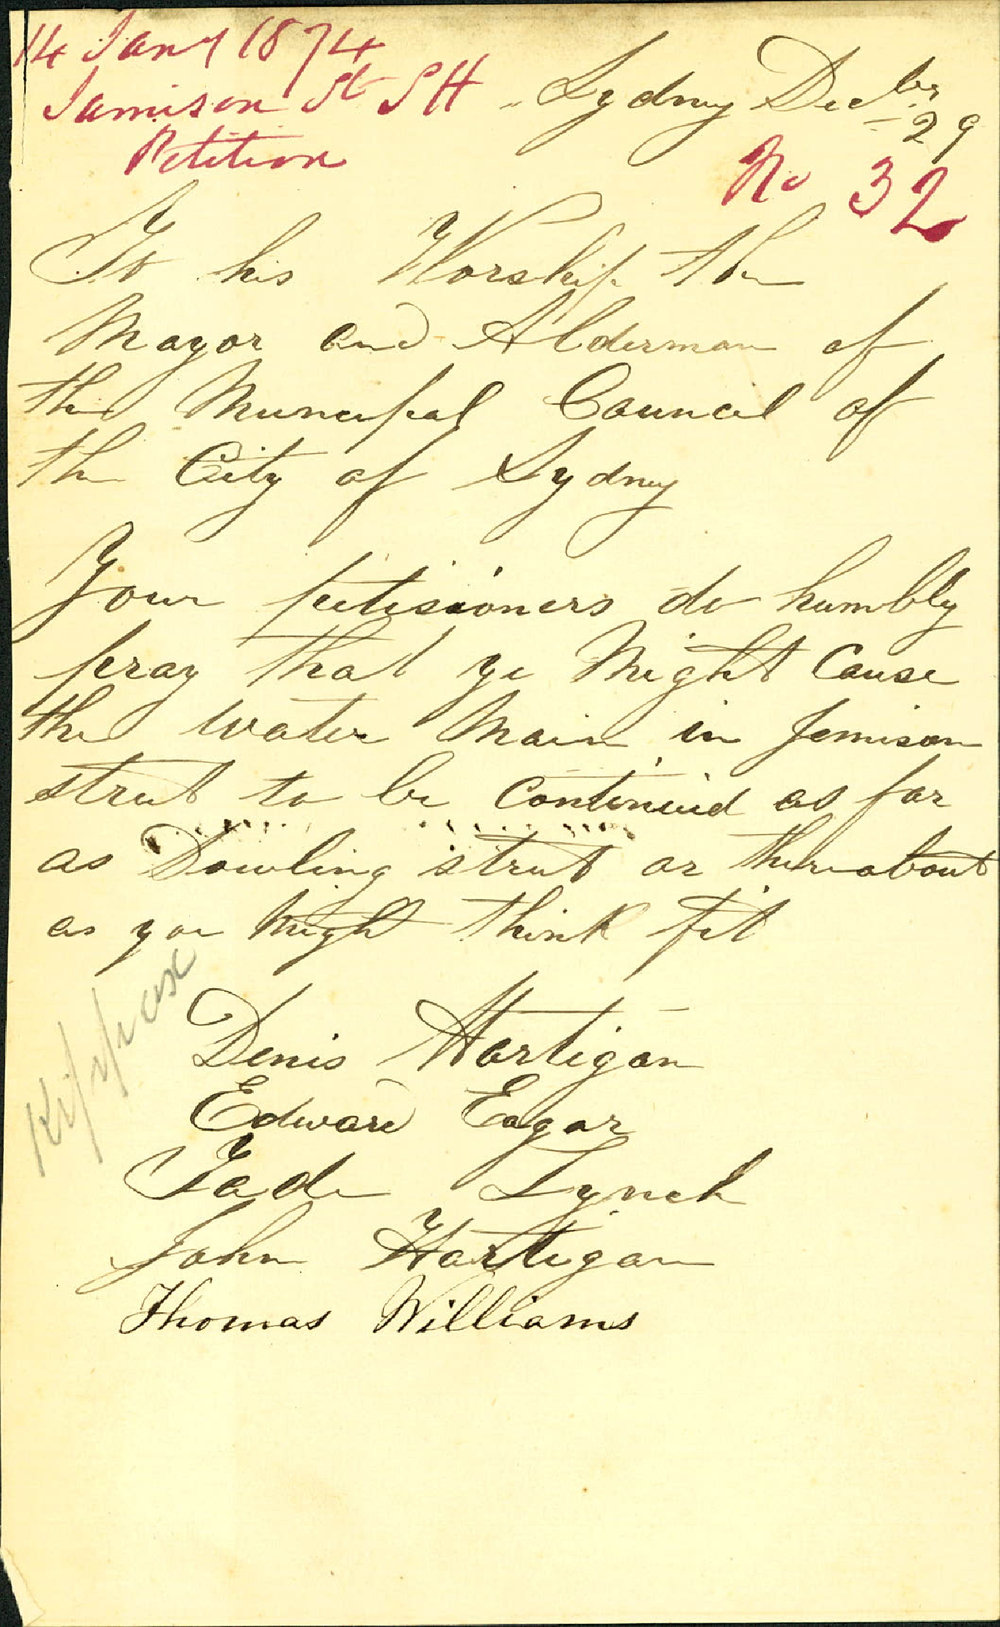 14 Jany 1874
Jamison St SH
Petition
Sydney Decbr 29
No 32
To his Worship the
Mayor and Alderman of
the Muncipal Council of
the City of Sydney
Your petisioners do humbly
pray that ye Might Cause
the water Main in Jemison
street to be Continued as far
as Dowling street or thereabout
as you might think fit
Kippax
Denis Hartigan
Edward Eagar
Tade Lynch
John Hartigan
Thomas Williams